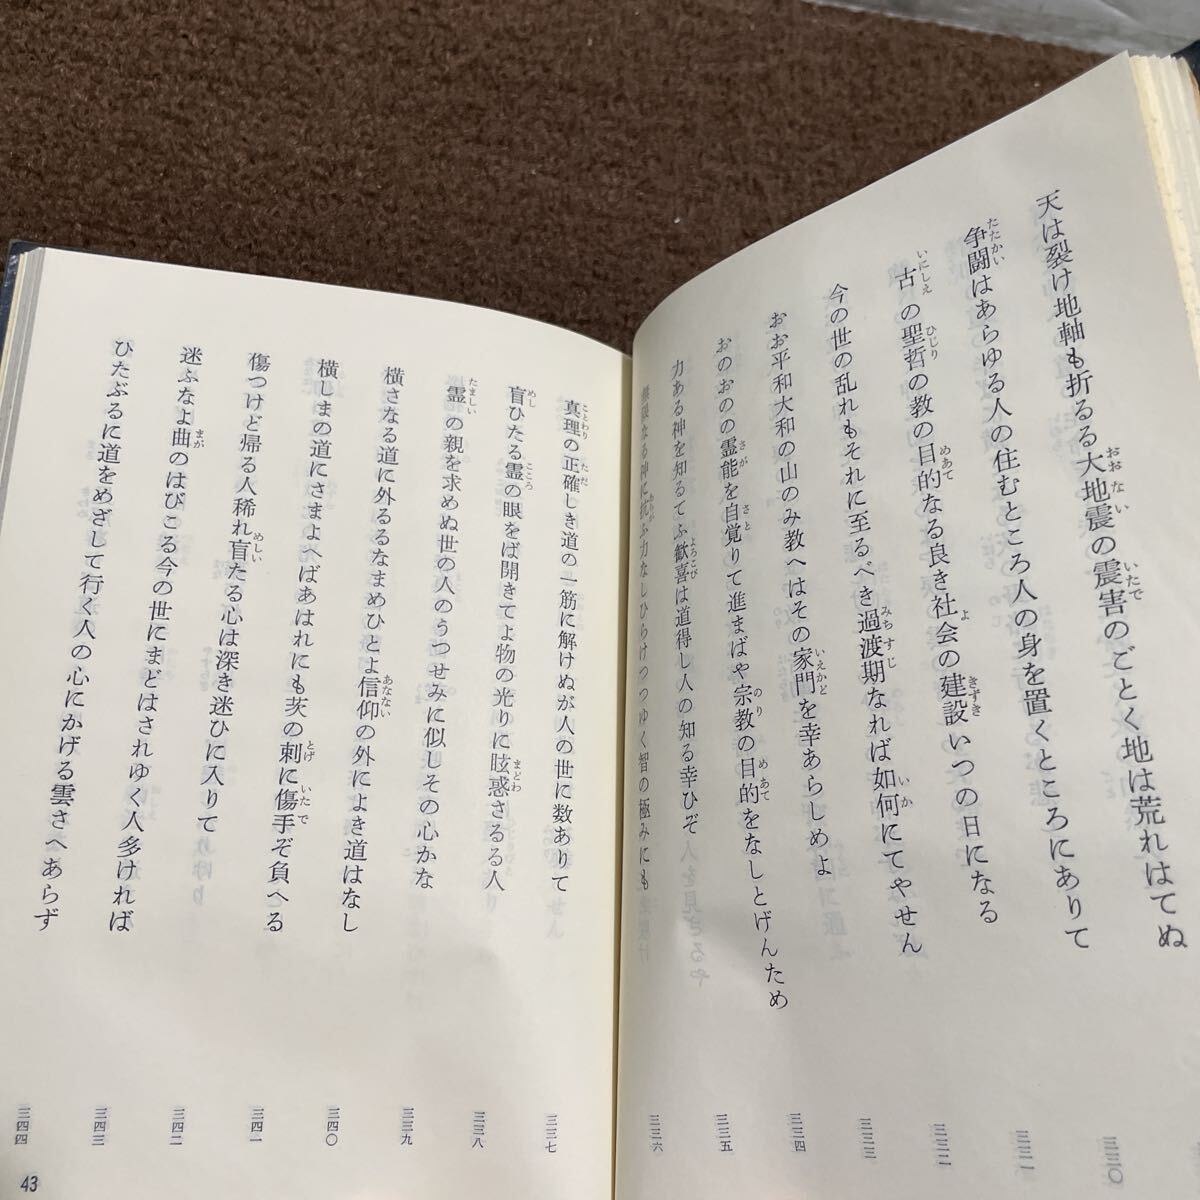 天は裂け地軸も折るる大地震の震害のごとく地は荒れはてぬ
三三〇
争闘はあらゆる人の住むところ人の身を置くところにありて
三三一
古の聖哲の教の目的なる良き社会の建設いつの日になる
三三二
今の世の乱れもそれに至るべき過渡期なれば如何にてやせん
三三三
おお平和大和の山のみ教へはその家門を幸あらしめよ
三三四
おのおのの霊能を自覚りて進まばや宗教の目的をなしとげんため
三三五
力ある神を知るてふ歓喜は道得し人の知る幸ひぞ
三三六
なる神に抗ふ力なしひらけつつゆく智の極みにも
真理の正確しき道の一筋に解けぬが人の世に数ありて
三三七
盲ひたる霊の眼をば開きてよ物の光りに眩惑さるる人
三三八
霊の親を求めぬ世の人のうつせみに似しその心かな
三三九
横さなる道に外るるなまめひとよ信仰の外によき道はなし
三四〇
横しまの道にさまよへばあはれにも茨の刺に傷手ぞ負へる
三四一
傷つけど帰る人稀れ盲たる心は深き迷ひに入りて
三四二
迷ふなよ曲のはびこる今の世にまどはされゆく人多ければ
三四三
ひたぶるに道をめざして行く人の心にかげる雲さへあらず
三四四
43